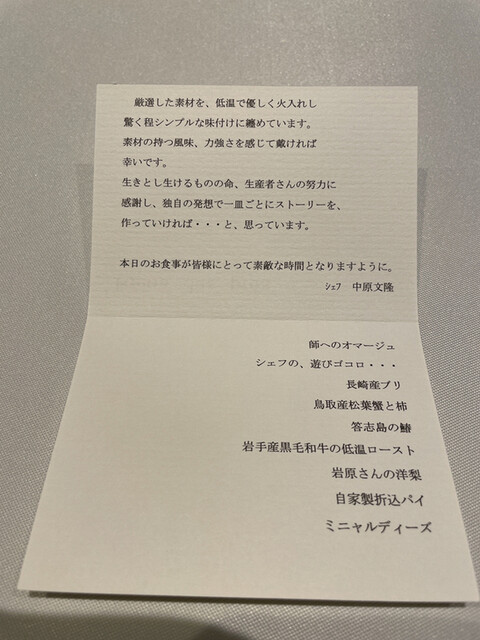 厳選した素材を、低温で優しく火入れし
驚く程シンプルな味付けに纏めています。
素材の持つ風味、力強さを感じて戴ければ
幸いです。
生きとし生けるものの命、生産者さんの努力に
感謝し、独自の発想で一皿ごとにストーリーを、
作っていければ・・・と、思っています。
本日のお食事が皆様にとって素敵な時間となりますように。
ｼｪﾌ 中原文隆
師へのオマージュ
シェフの、遊びゴコロ・・・
長崎産ブリ
鳥取産松葉蟹と柿
答志島の鰆
岩手産黒毛和牛の低温ロースト
岩原さんの洋梨
自家製折込パイ
ミニャルディーズ